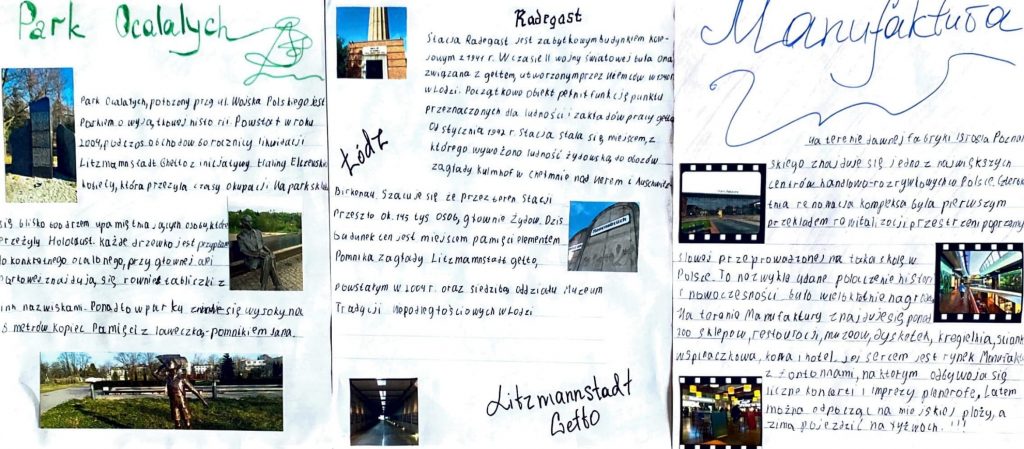 Park Ocalałych
Park Ocalałych, położony przy ul. Wojska Polskiego jest
Parkiem o wyjątkowej historii. Powstał w roku
2004, podczos obchodów 60 rocznicy likwidacji
Litzmannstadt Ghetto z inicjatywy Haliny Elczewskiej
kobiety, która przeżyła czasy okupacji. Na park składa
się blisko 600 drzew upamiętniających osoby, które
przeżyły Holokaust. każde drzewko jest przypisane
do konkretnego ocalonego, przy głównej
parkowej znajdują się również tabliczki z
nazwiskami. Ponadto w parku się wysoky na
8 metrów kopiec Pamięci z ławeczką-pomnikiem Jana
Radegast
Stacja Radegast jest zabytkowym budynkiem kole-
jowym z 1941 r. W czasie II wojny światowej była ona
związana z gettem, utworzonym przez Niemców w 1940
w Łodzi. Początkowo obiekt pełnił funkcję punktu
przeznaczonych dla ludności i zakładów pracy getta
Od stycznia 1942 r. Stacja stała się miejscem, z
którego wywożono ludność żydowską do obozów
zagłady kulmhof w Chełmnie nad Nerem i Auschwitz-
Łódź
Birkenau. Szacuje się że przez teren Stacji
Przeszło ok. 145 tyś osób, głównie Żydów. Dziś
budynek ten jest miejscem pamięci elementem
Pomnika zagłady Litzmannstadt getto,
powstałym w 2004 r. oraz siedzibą oddziału Muzeum
Tradycji Niepodległościowych w Łodzi
Litzmannstadt
Getto
Manufaktura
na terenie dawnej fabryki Izraela Poznań
skiego znajduje się jedno z największych
centrów handlowo-rozrywkowych w Polsce.
tnia renowacja kompleksa była pierwszym
przykładem rewitalizacji przestrzeni poprzemy
słowej przeprowadzonej na taką skalę w
Polsce. To niezwykle udane połączenie historii
i nowoczesności było wielokrotnie nagrodzo
Na terenie Manufaktury znajduje się ponad
200 sklepów, restauracji, muzeów, dyskotek, kręgielnia, ścianka
wspinaczkowa, kina i hotel. jej sercem jest rynek Manufak
z fontannami, na którym odbywają się
liczne koncerty i imprezy plenerowe, Latem
można odpocząć na miejskiej plaży, a
zimą pojeździć na łyżwach. !!!